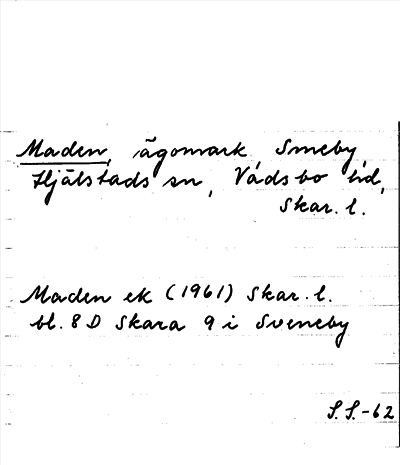 Maden, ägomark, Smeby,
Hjälstads sn, Vadsbo hd,
Skar. l.
Maden ek (1961) Skar. l.
bl. 8 D Skara 9 i Sveneby
S.S.-62